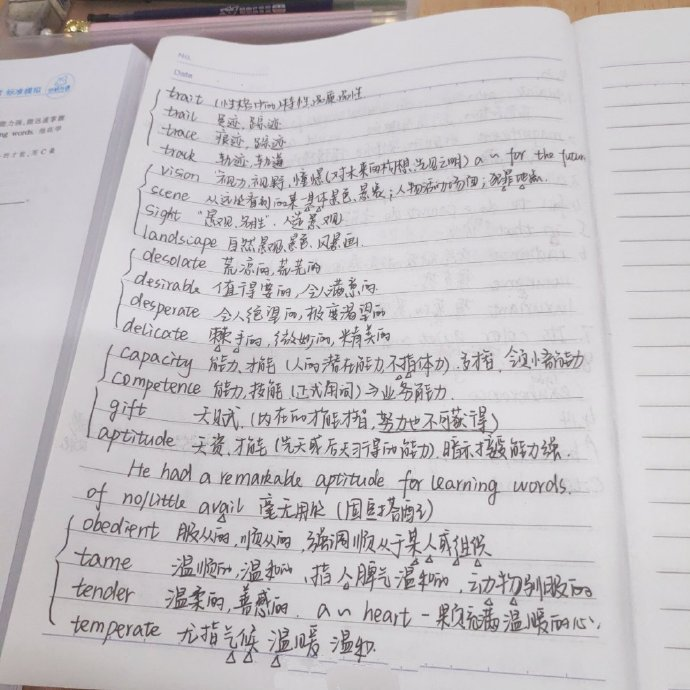 标准模拟
ng words. 他花学
No.
Date
trait （性格中的）特性,品质,品性
trail 足迹,踪迹
trace 痕迹,踪迹
track 轨迹,轨道
vision 视力,视野,憧憬（对未来的构想,先见之明）a ~ for the future
scene 从远处看到的某一具体景色、景象；人物活动场面；犯罪地点.
sight "景观,名胜"、人造景观
landscape 自然景观,景色、风景画.
desolate 荒凉的,荒芜的
desirable 值得要的,令人满意的
desperate 令人绝望的,极度渴望的
delicate 棘手的,微妙的,精美的
capacity 能力,才能（人的潜在能力,不指体力）多指，领悟能力
competence 能力,技能（正式用词）→业务能力.
gift 天赋,（内在的才能才智,努力也不可获得）
aptitude 天资,才能（先天或后天习得的能力）,暗示接受能力强.
He had a remarkable aptitude for learning words.
of no/little avail 毫无用处（固定搭配）
obedient 服从的,顺从的，强调顺从于某人或组织
tame 温顺的,温和的，指人脾气温和的，动物驯服的
tender 温柔的,善感的. a ~ heart 一颗充满温暖的心.
temperate 尤指气候 温暖 温和.